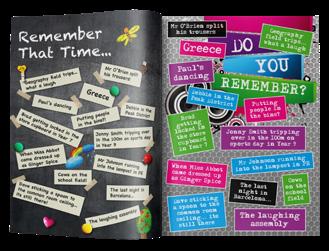 Remember
That Time...
Mr O'Brien split
his trousers
Geography field trips...
what a laugh
Greece
Paul's dancing
Debbie in the
Peak District
Putting people
in the bins!
Brad getting locked in the
store cupboard in Year 7
Jonny Smith tripping over
in the 100m on sports day
in Year 9
When Miss Abbot
came dressed up
as Ginger Spice
Mr Johnson running
into the lampost in PE
Cows on the
school field!
The last night in
Barcelona...
Dave sticking a spoon to
the common room ceiling...
it's still there
The laughing assembly
Mr O'Brien split
his trousers
Geography
field trips...
what a laugh
Greece
DO
YOU
REMEMBER?
Paul's
dancing
Debbie in the
Peak District
Putting
people in
the bins!
Brad
getting
locked in
the store
cupboard
in Year 7
Jonny Smith tripping
over in the 100m on
sports day in Year 9
When Miss Abbot
came dressed up
as Ginger Spice
Mr Johnson running
into the lampost in PE
The last
night in
Barcelona...
Cows
on the
school
field
Dave sticking
a spoon to the
common room
ceiling... its
still there
The laughing
assembly